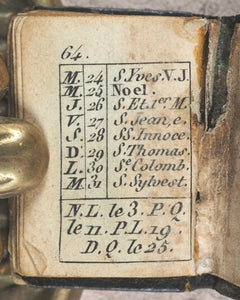 64.
M. 24 S. Yves. N. J.
M. 25 Noel.
J. 26 S. Et. 1er M.
V. 27 S. Jean, e.
S. 28 SS. Innoce.
D. 29 S. Thomas.
L. 30 Se Colomb.
M. 31 S. Sylvest.
N. L. le 3. P. Q.
le 11. P. L. 19.
D. Q. le 25.